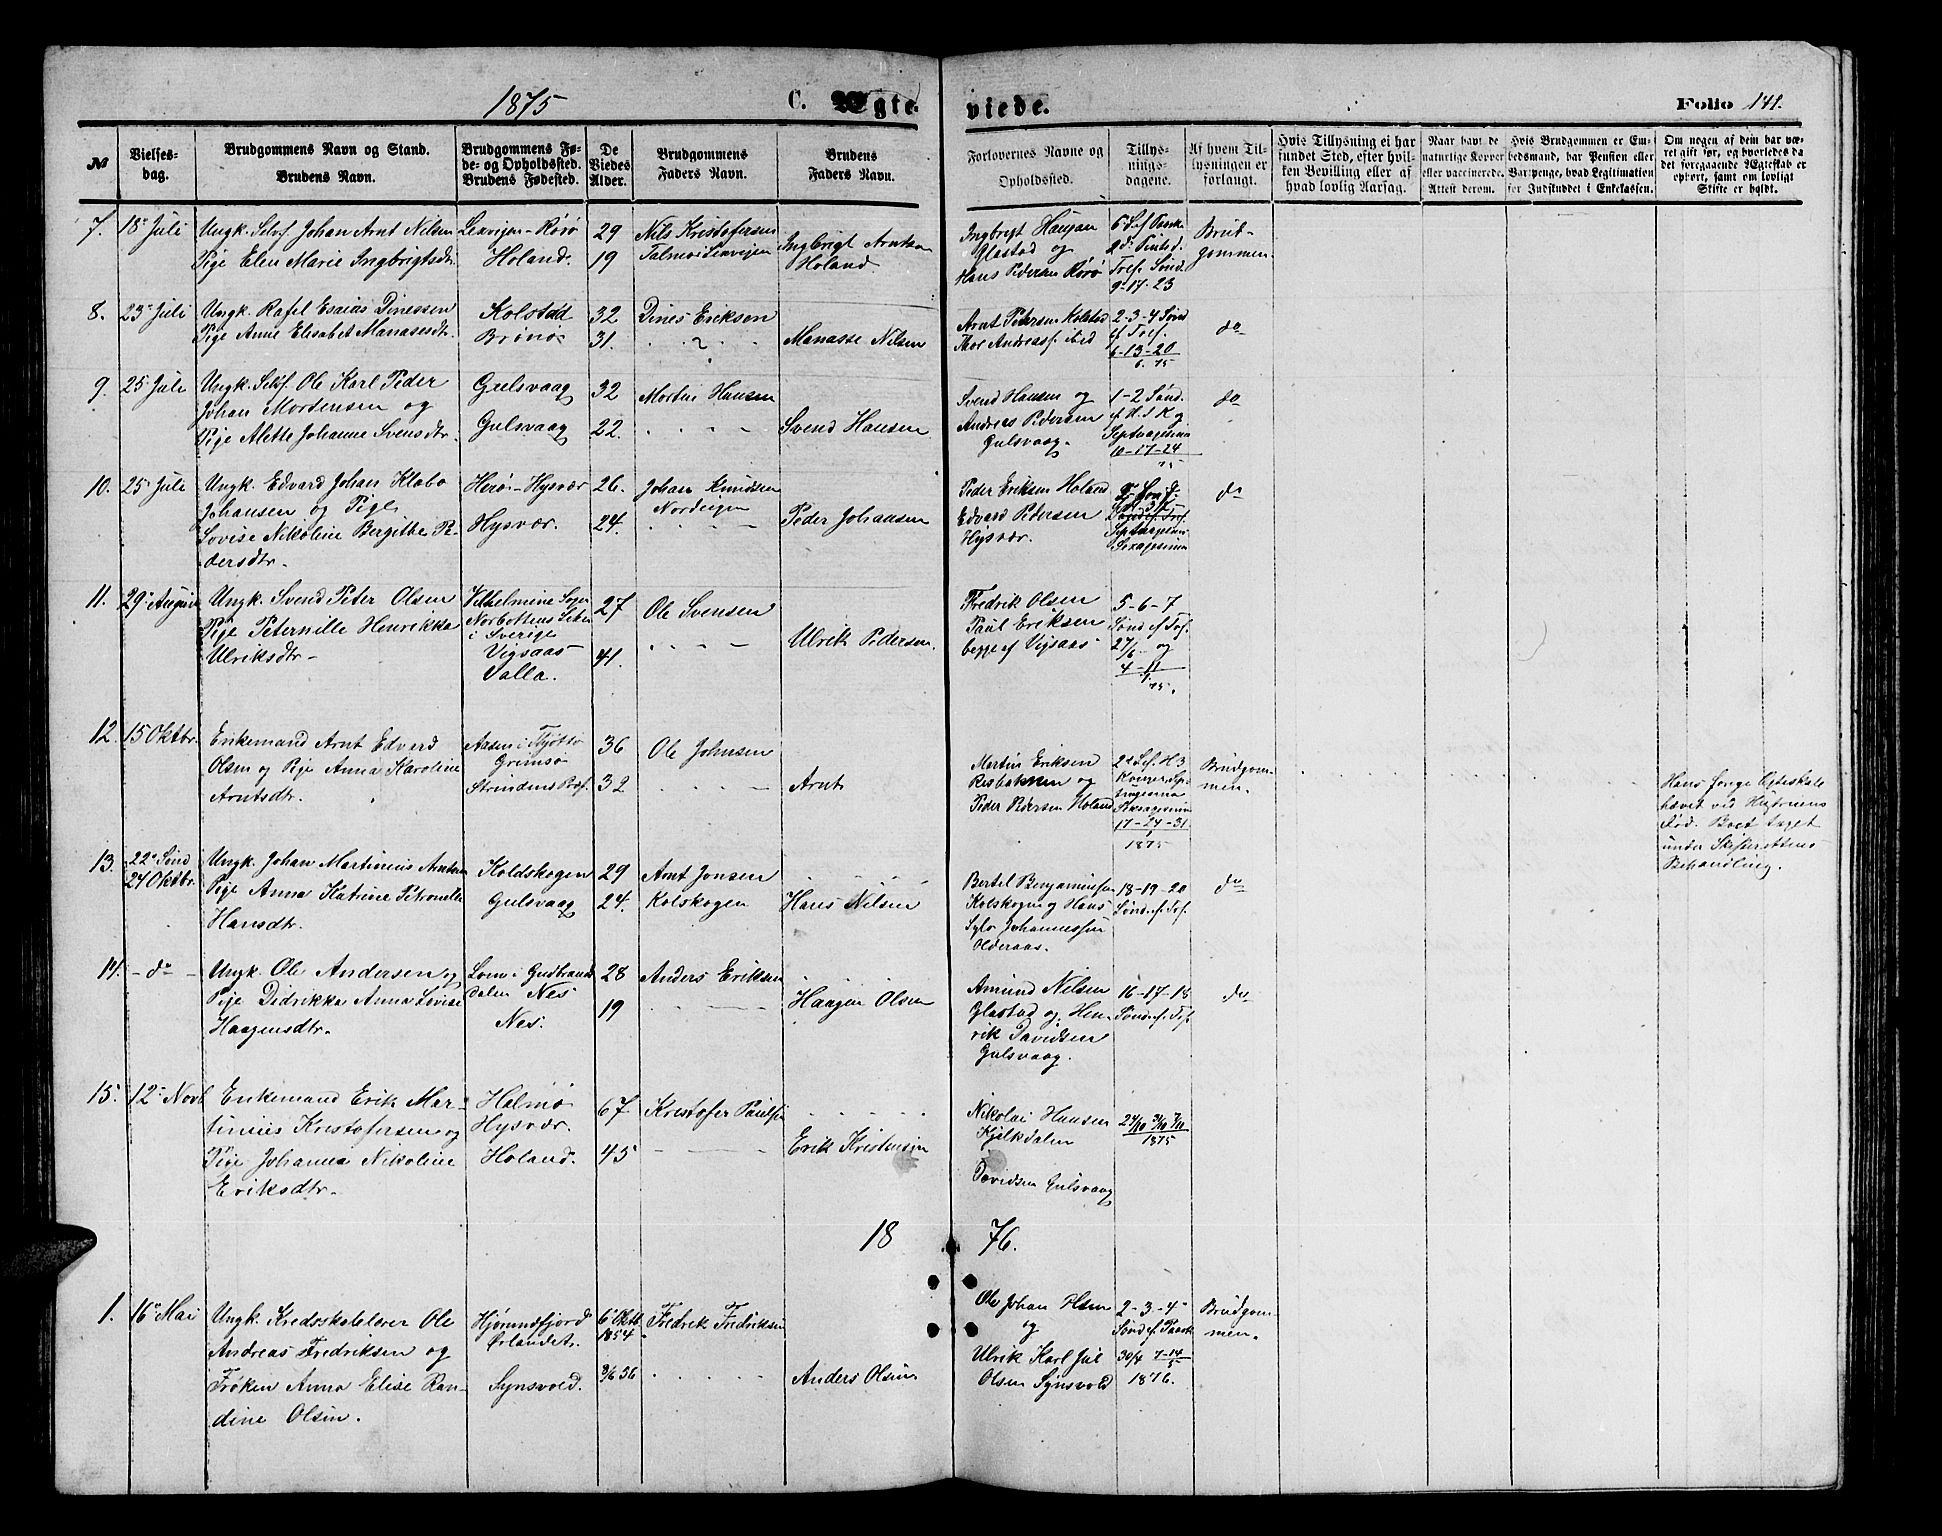 1875
C. Ægte-
viede.
Folio 141.
№
Vielses-
dag.
Brudgommens Navn og Stand.
Brudens Navn.
Brudgommens Fø-
de- og Opholdssted.
Brudens Fødested.
De
Viedes
Alder.
Brudgommens
Faders Navn.
Brudens
Faders Navn.
Forlovernes Navne og
Opholdssted.
Tillys-
nings-
dagene.
Af hvem Til-
lysningen er
forlangt.
Hvis Tillysning ei har
fundet Sted, efter hvil-
ken Bevilling eller af
hvad lovlig Aarsag.
Naar havt de
naturlige Kopper
eller vaccinerede.
Attest derom.
Hvis Brudgommen er Em-
bedsmand, har Pension eller
Vartpenge, hvad Legitimation
for Indskuddet i Enkekassen.
Om nogen af dem har væ-
ret gift før, og hvorledes da
det foregaaende Ægteskab er
ophørt, samt om lovligt
Skifte er holdt.
7. 18 Juli Ungk. Selvf. Johan Arnt Nilsen
Pige Elen Marie Ingbrigtsdtr.
Leinvijen - Rørø
Holand.
29
19
Nils Kristofersen
Ingbrigt Arntsen
Holand.
Ingbrigt Hansen
Glastad og
Hans Pedersen Rørø
6 S. ef. Paaske
2 d. Pintsd.
Tref. Sønd.
9-17-23
Brud-
gommen.
8. 23 Juli Ungk. Rafel Esaias Dinessen
Pige Anne Elisabet Manassesdtr.
Kolstad
Brønø
32
31.
Dines Eriksen
Manasse Nilsen
Arnt Petersen Kolstad
Thor Andreass. ibid
2-3-4 Sønd
ef Tref.
6-13-20
6. 75
do
9. 25 Juli Ungk. Selvf. Ole Karl Peder
Johan Mortensen og
Pige Alette Johanne Svensdtr.
Gulsvaag
Gulsvaag
32
22.
Morten Hansen
Svend Hansen
Svend Hansen og
Andreas Pedersen
Gulsvaag.
1-2 Sønd.
ef. H. 3 K og
Septuagesima
10-17-24
75
do
10. 25 Juli Ungk. Edvard Johan Klabo
Johansen og Pige
Lovise Nikoline Bergithe Pe-
dersdtr.
Herø - Hysvær
Hysvær.
26.
24.
Johan Knudsen
Nordvigen
Peder Johansen
Peder Eriksen Holand
Edvard Pedersen
Hysvær.
Septuagesima
Sexagesima
do
11. 29 August Ungk. Svend Peter Olsen
Pige Peternille Henrikka
Ulriksdtr.
Vilhelmine Sogn
Norbottens Lehn
i Sverige
Vigsaas
Valla.
27
41.
Ole Svensen
Ulrik Pedersen.
Fredrik Olsen
Paul Eriksen
begge af Vigsaas
5-6-7
Sønd ef Tref.
27/6 - og
4-11
7. 75.
12. 15 Oktbr. Enkemand Arnt Edvard
Olsen og Pige Anna Karoline
Arntsdtr.
i Tjøttø
Grimsø
Strindens Præf.
36
32
Ole Johnsen
Arnt
Martin Eriksen
Risbakken og
Peder Pedersen Holand
2 S. ef. H. 3
Konger, Sep-
tuagesima
Sexagesima
17-24-31
1
1875
Brudgom-
men.
Hans forige Egteskab
hævet ved Hustruens
Død. Boet taget
under Skifterettens
Behandling.
13. 22 Sønd
24 Oktbr.
Ungk. Johan Martinius Arntsen
Pige Anna Katrine Petronelle
Hansdtr.
Koldskogen
Gulsvaag
29
24.
Arnt Jonsen
Kolskogen
Hans Nilsen
Bertel Benjaminsen
Kolskogen og Hans
Johannessen
Olderaas.
18-19-20
Sønd. ef. Tref.
do
14. - do - Ungk. Ole Andersen og
Pige Didrikka Anna Lovise
Haagensdtr.
Lom i Gudbrands
dalen Nes
Nes.
28
19
Anders Eriksen
Haagen Olsen
Amund Nilsen
Glastad og Hen-
rik Davidsen
Gulsvaag.
16-17-18
Sønd. ef. Tref.
do
15. 12 Novb Enkemand Erik Mar-
tinius Kristofersen og
Pige Johanna Nikoline
Eriksdtr.
Halmø
Hysvær.
Holand.
67
45
Kristofer Paulsen
Erik Kristensen
Nikolai Hansen
Kjelkdalen
Davidsen Gulsvaag
24/10 31/10 7/11
1875
18 76.
1. 16 Mai Ungk. Kredsskolelærer Ole
Andreas Fredriksen og
Frøken Anna Elise Ran-
dine Olsen.
Hjørundfjord
Ørlandet.
Synsvold.
6 Oktb
1854
8/6 56
Fredrik Fredriksen
Anders Olsen
Ole Johan Olsen
og
Ulrik Karl Jul
Olsen Synsvold
2-3-4
Sønd ef. Paaske
30/4 7-14
5
1876.
Brudgom-
men.